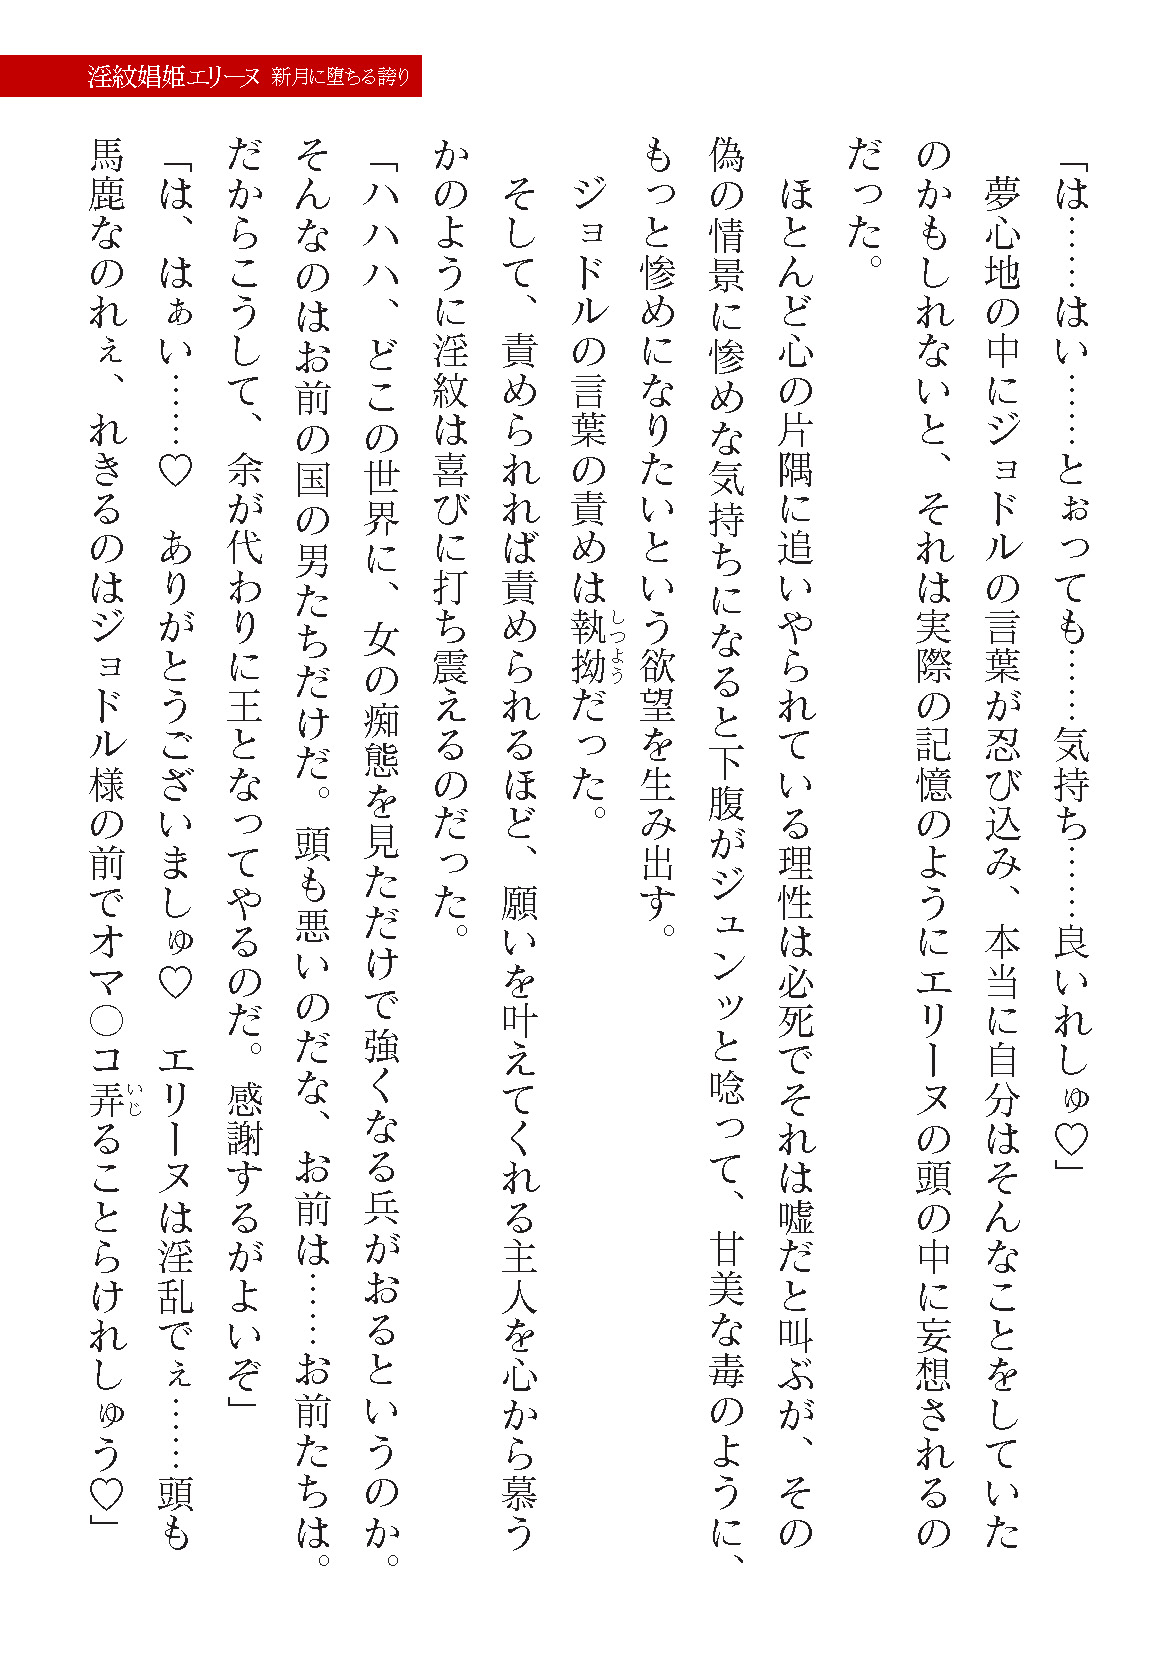 淫紋娼姫エリーヌ 新月に堕ちる誇り
「は……はい……とぉっても……気持ち……良いれしゅ♡」
　夢心地の中にジョドルの言葉が忍び込み、本当に自分はそんなことをしていた
のかもしれないと、それは実際の記憶のようにエリーヌの頭の中に妄想されるの
だった。
　ほとんど心の片隅に追いやられている理性は必死でそれは嘘だと叫ぶが、その
偽の情景に惨めな気持ちになると下腹がジュンッと唸って、甘美な毒のように、
もっと惨めになりたいという欲望を生み出す。
　ジョドルの言葉の責めは執拗しつようだった。
　そして、責められれば責められるほど、願いを叶えてくれる主人を心から慕う
かのように淫紋は喜びに打ち震えるのだった。
「ハハハ、どこの世界に、女の痴態を見ただけで強くなる兵がおるというのか。
そんなのはお前の国の男たちだけだ。頭も悪いのだな、お前は……お前たちは。
だからこうして、余が代わりに王となってやるのだ。感謝するがよいぞ」
「は、はぁい……♡　ありがとうございましゅ♡　エリーヌは淫乱でぇ……頭も
馬鹿なのれぇ、れきるのはジョドル様の前でオマ〇コ弄いじることらけれしゅう♡」